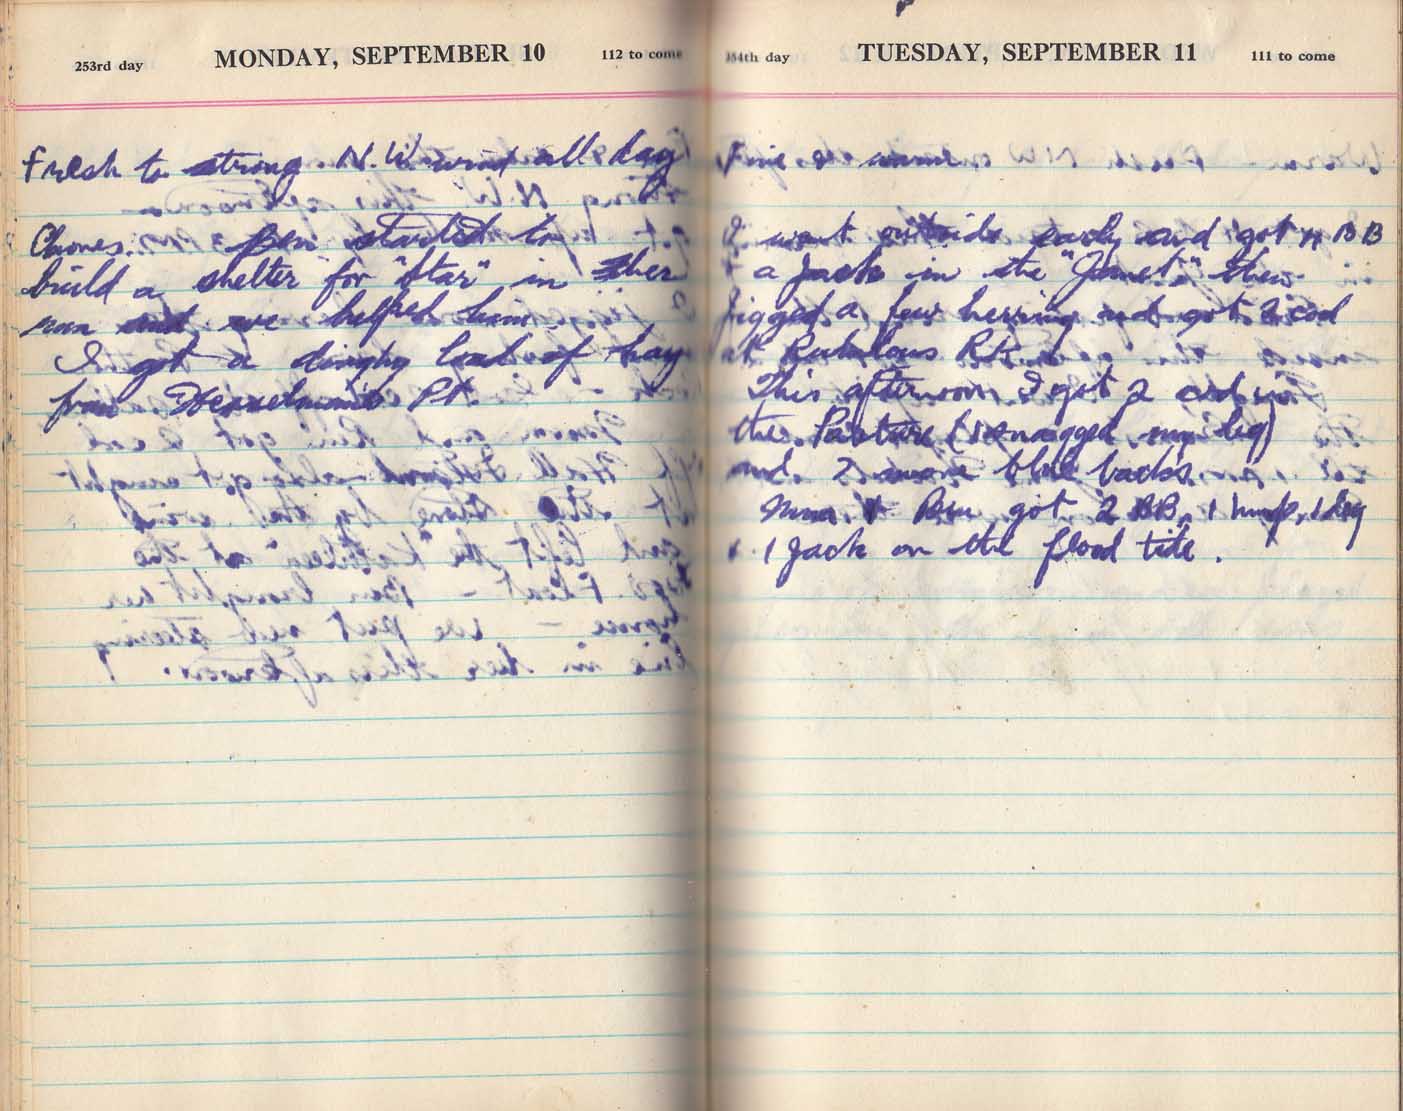 253rd day MONDAY, SEPTEMBER 10 112 to come
Fresh to strong N.W. wind all day
Chores. Ben started to
build a shelter for "Star" in her
run and we helped him.
I got a dinghy load of hay
from Pt.
254th day TUESDAY, SEPTEMBER 11 111 to come
Fine & warm
I went outside early and got 4 BB
& a Jack in the "Janet", then
jigged a few herring and got 2 cod
at Rk.
This afternoon I got 2 cod in
the Pasture (snagged my jig)
and 2 more blue backs.
Nina & Ben got 2 BB, 1 hump, 1 dog
& 1 Jack on the flood tide.